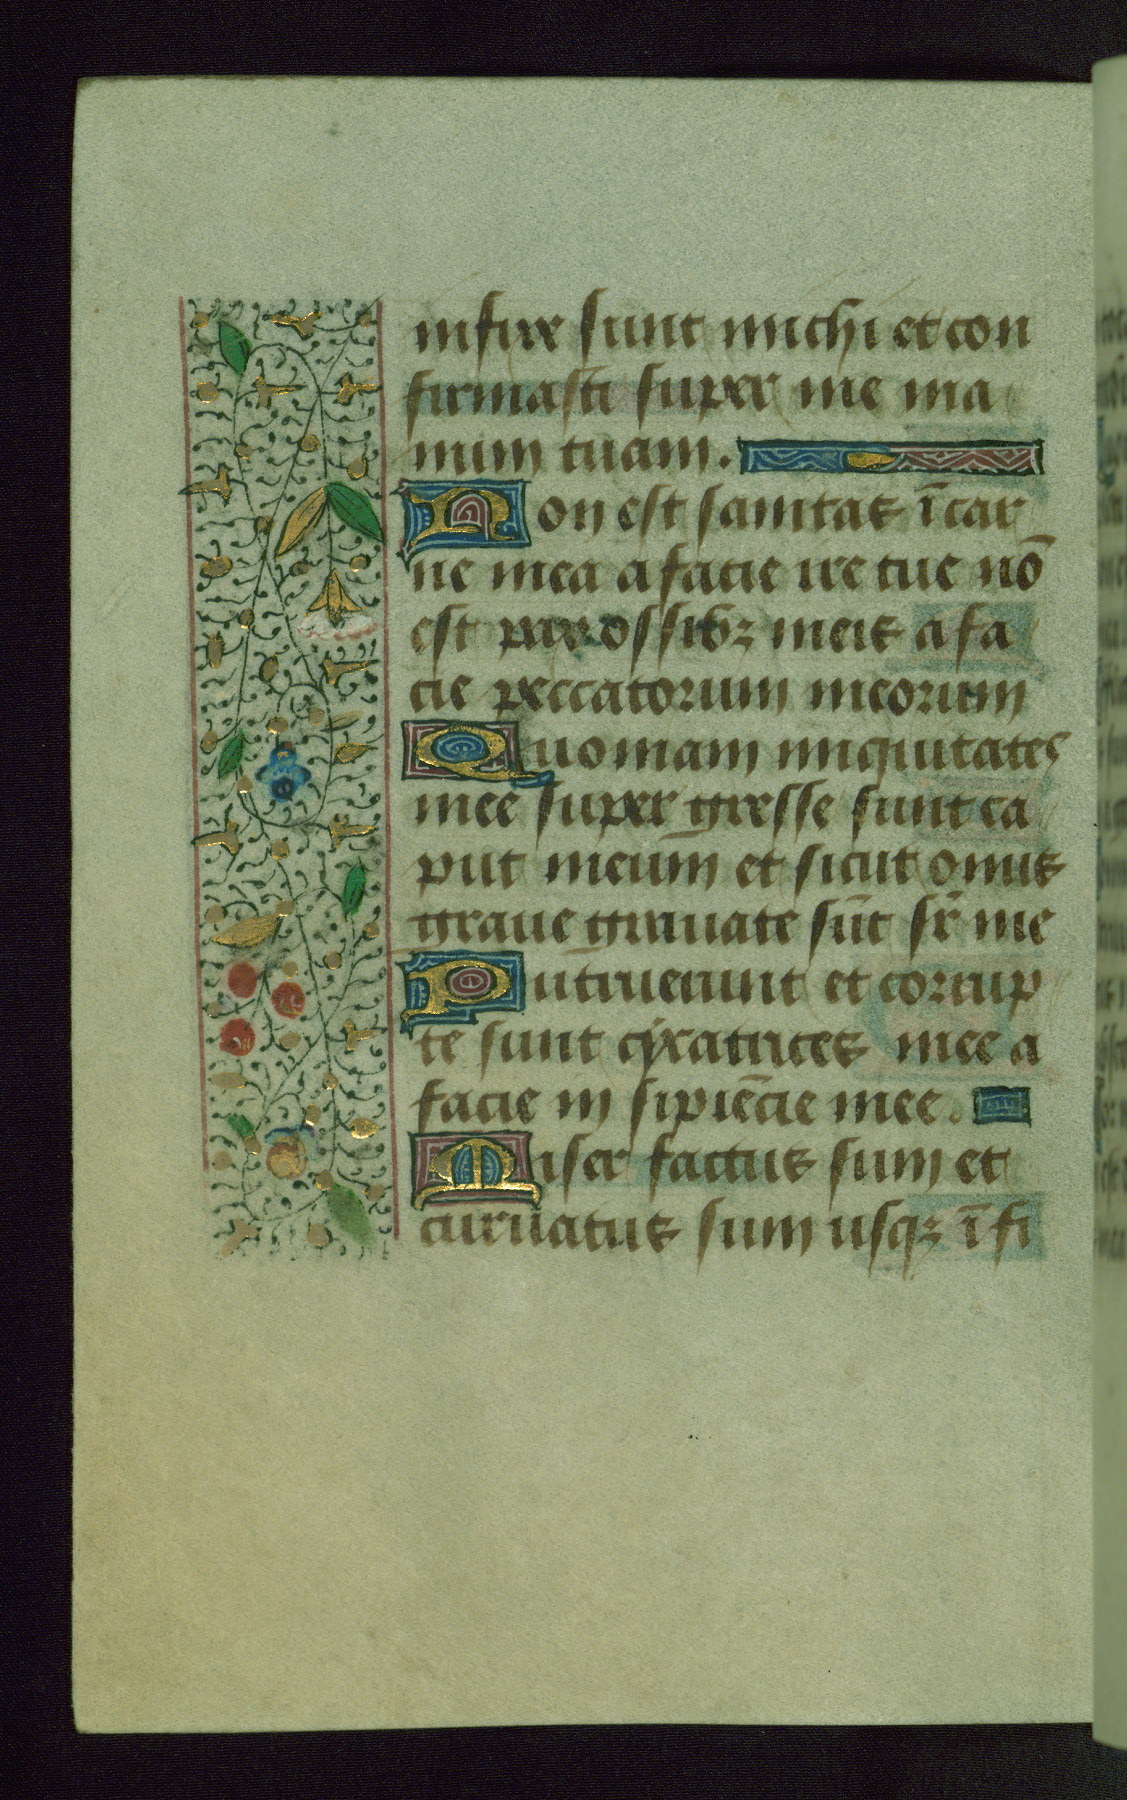 infixe sunt michi et con
firmasti super me ma
num tuam.
Non est sanitas ī car
ne mea a facie ire tue nō
est pax ossibꝫ meis a fa
cie peccatorum meorum
Quoniam iniquitates
mee super gresse sunt ca
put meum et sicut onus
graue grauate sūt sr̄ me
Putruerunt et corrup
te sunt cyxatrices mee a
facie in sipiēcie mee.
Miser factus sum et
curuatus sum usqꝫ ī fi